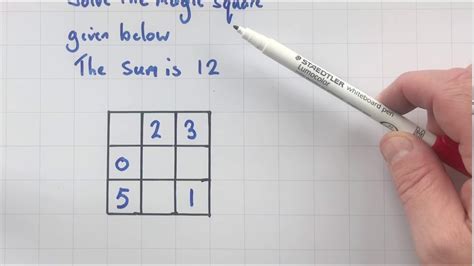 Solve the Magic Square
given below
The sum is 12
STAEDTLER whiteboard pen
Lumocolor
2 3
0
5 1